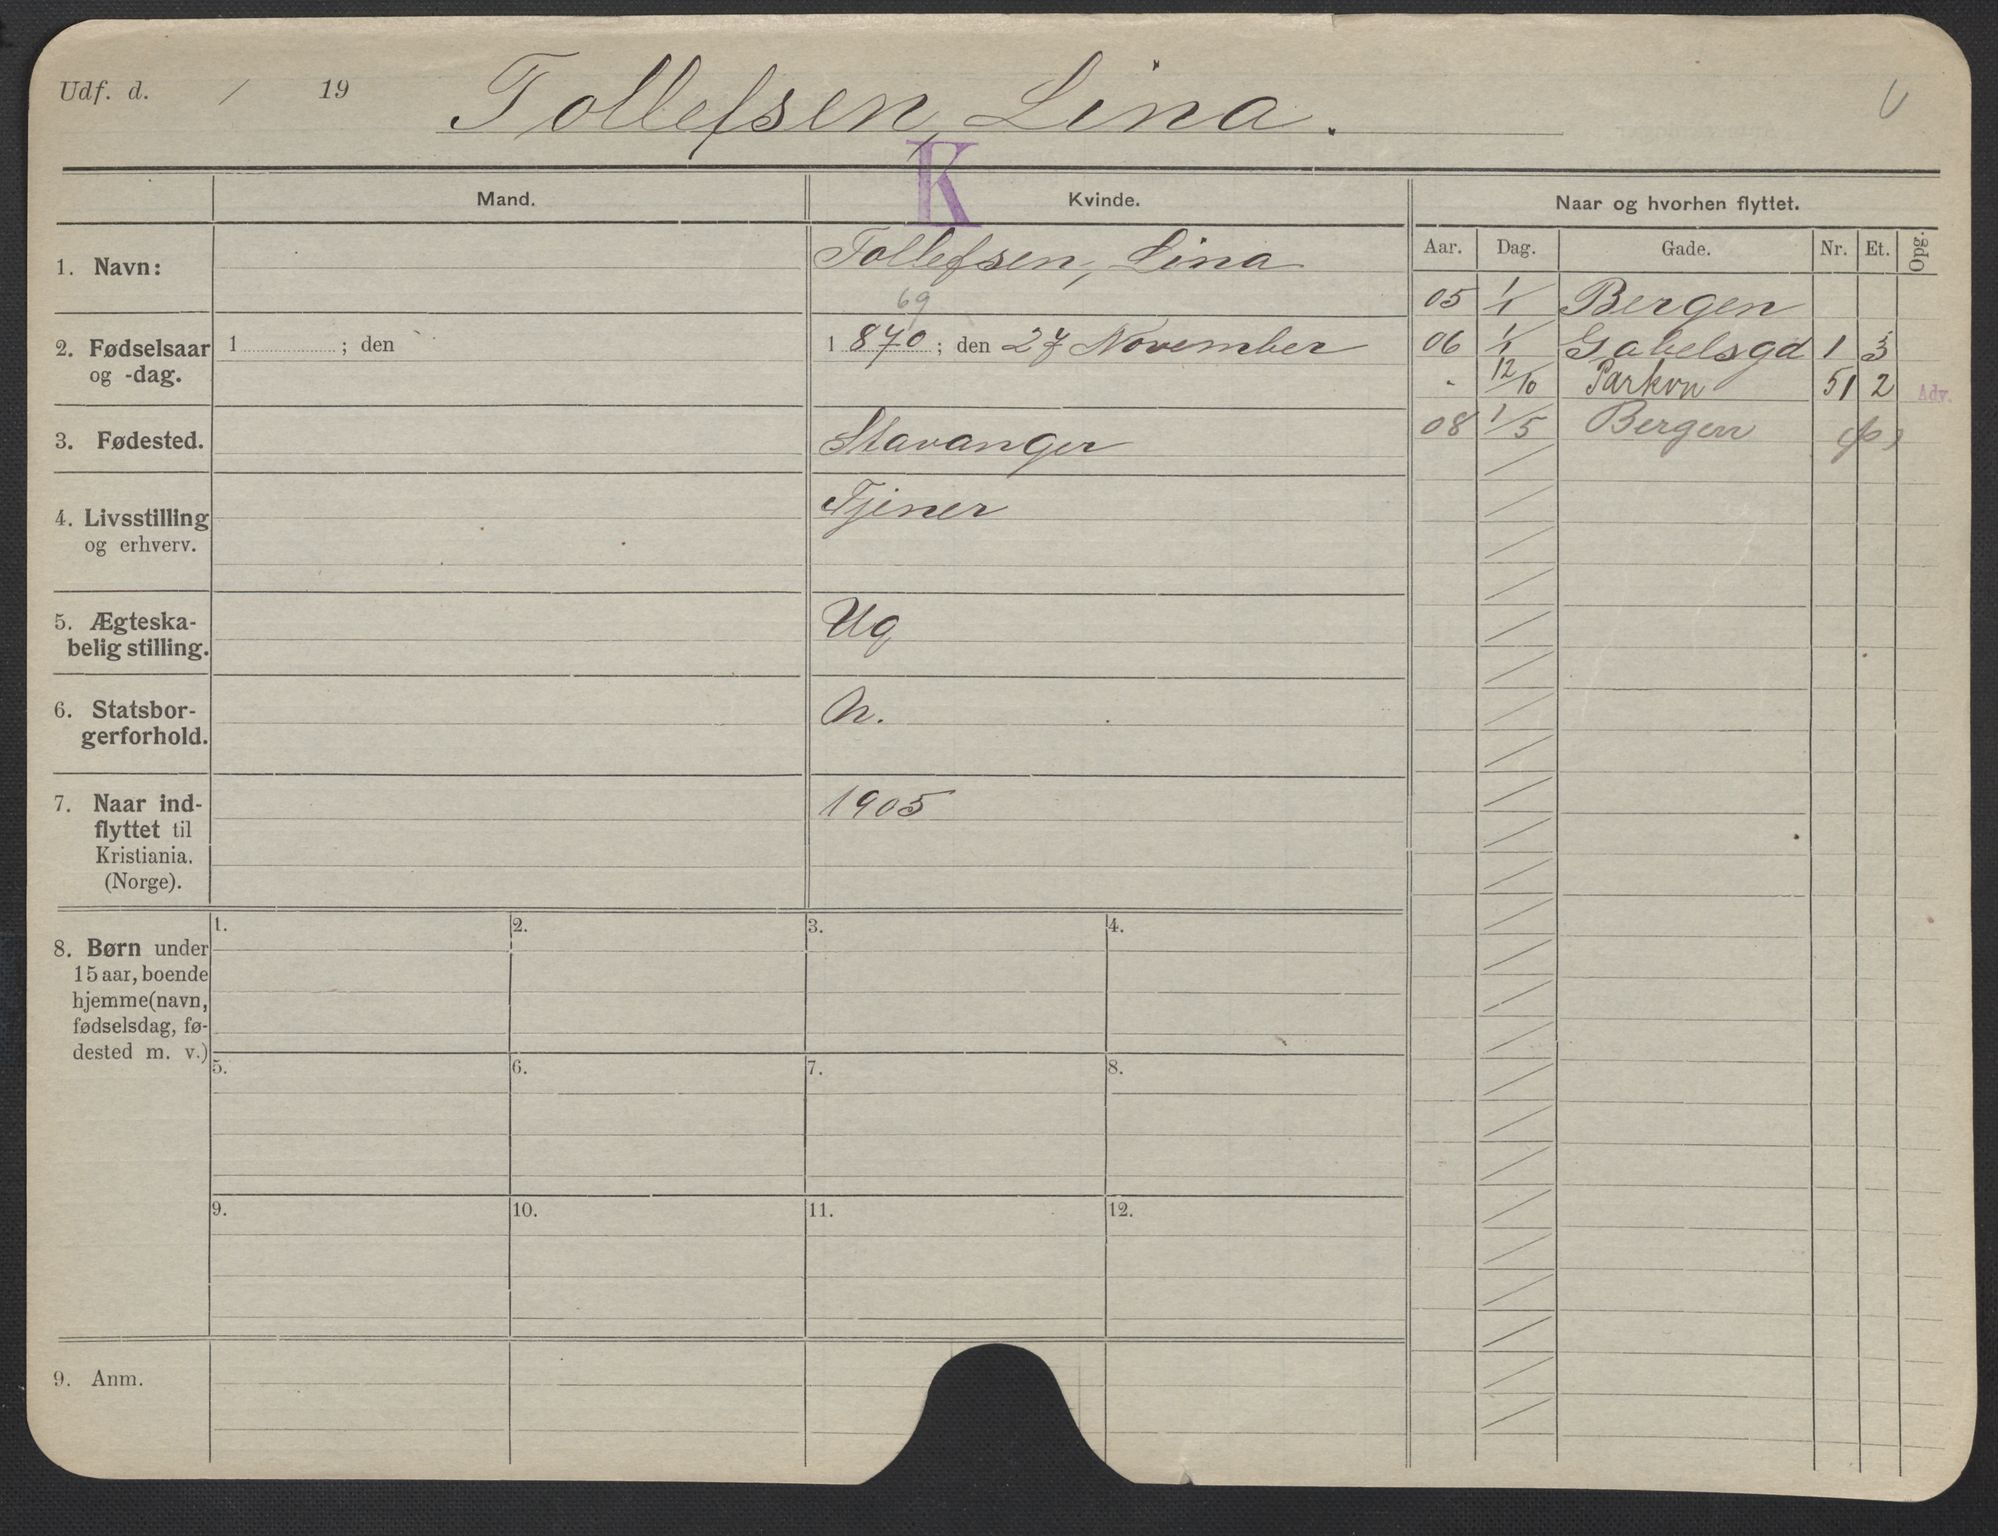 Udf. d. / 19 Tollefsen, Lina. U
K
Mand. Kvinde. Naar og hvorhen flyttet.
Aar. Dag. Gade. Nr. Et. Opg.
1. Navn: Tollefsen, Lina
69
2. Fødselsaar og -dag. 1 ; den 1 870 ; den 27 November
3. Fødested. Stavanger
4. Livsstilling og erhverv. Tjener
5. Ægteska-
belig stilling. Ug
6. Statsbor-
gerforhold. N.
7. Naar ind-
flyttet til
Kristiania.
(Norge). 1905
05 1/1 Bergen
06 1/1 Gabelsgd 1 3
- 12/10 Parkvn 51 2 Adv.
08 1/5 Bergen
8. Børn under
15 aar, boende
hjemme (navn,
fødselsdag, fø-
dested m. v.)
1. 2. 3. 4.
5. 6. 7. 8.
9. 10. 11. 12.
9. Anm.